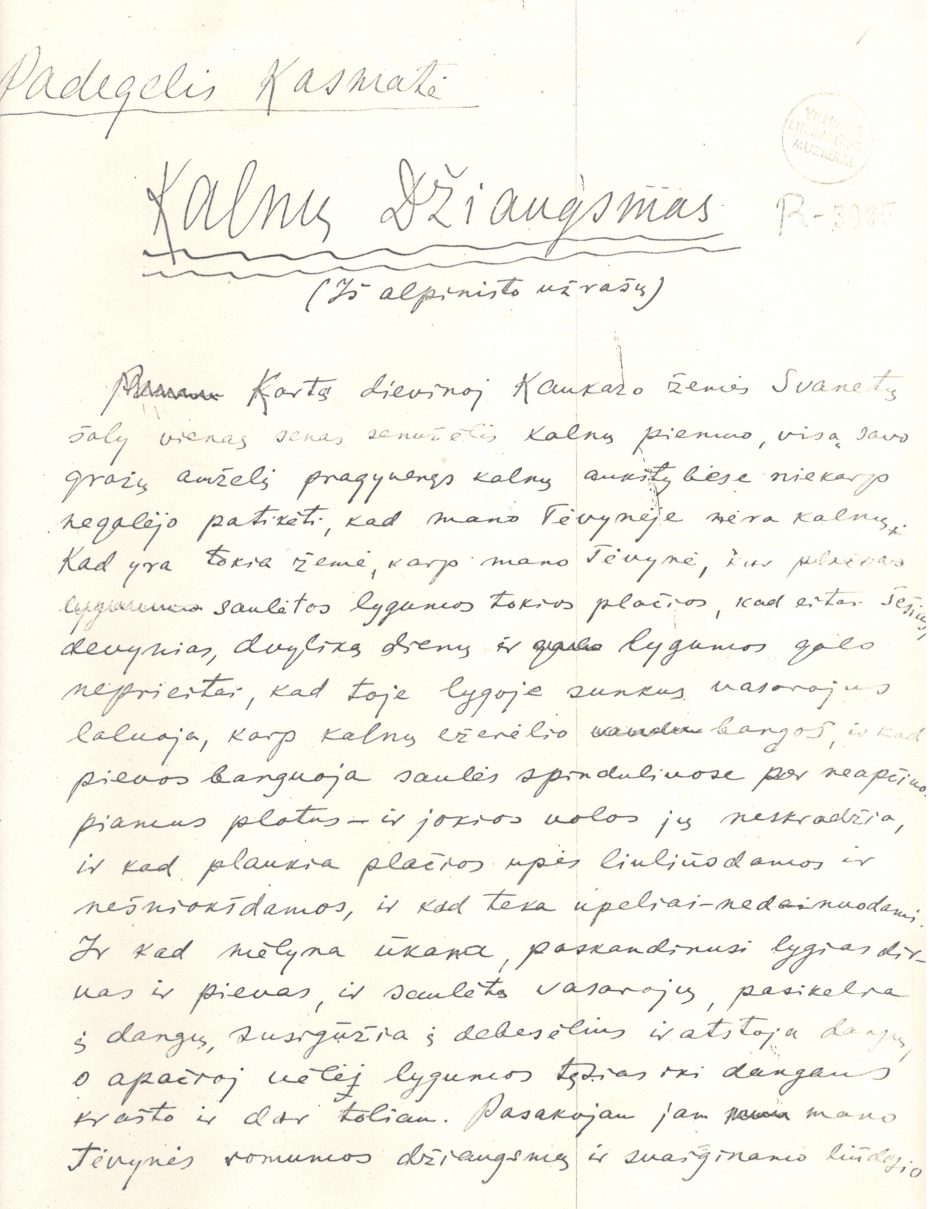 Padegelis Kasmatė
Kalnų Džiaugsmas
R-3985
(Iš alpinisto užrašų)
Kartą dievinoj Kaukazo žemės Svanetų
šaly vienas senas senužėlis kalnų piemuo, visą savo
gražų amželį pragyvenęs kalnų aukštybėse niekarp
negalėjo patikėti, kad mano Tėvynėje nėra kalnų.
Kad yra tokia žemė, karp mano Tėvynė, kur
saulėtos lygumos tokios plačios, kad eitai šešias,
devynias, dvyliką dienų ir lygumos galo
neprieitai, kad toje lygoje sunkus vasarojus
laluoja, karp kalnų ežerėlio bangos, ir kad
pievos banguoja saulės spinduliuose per neapčiuo-
piamus plotus – ir jokios uolos jų neskradžia,
ir kad plaukia plačios upės liuliuodamos ir
nešniokšdamos, ir kad teka upeliai – nedainuodami.
Ir kad mėlyna ūkana, paskandinusi lygias dir-
vas ir pievas, ir saulėtą vasarojų, pasikelia
į dangų, susigūžia į debesėlius ir atstoja dangų,
o apačioj vėlėj lygumos tęsias iki dangaus
krašto ir dar toliau. Pasakojau jam mano
Tėvynės romumos džiaugsmą ir svaiginamo liūdesio